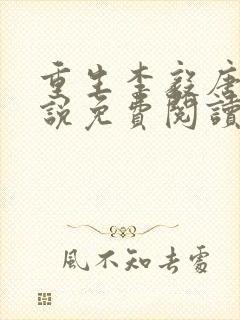 重生李毅唐
說免費閱讀
風不知去處